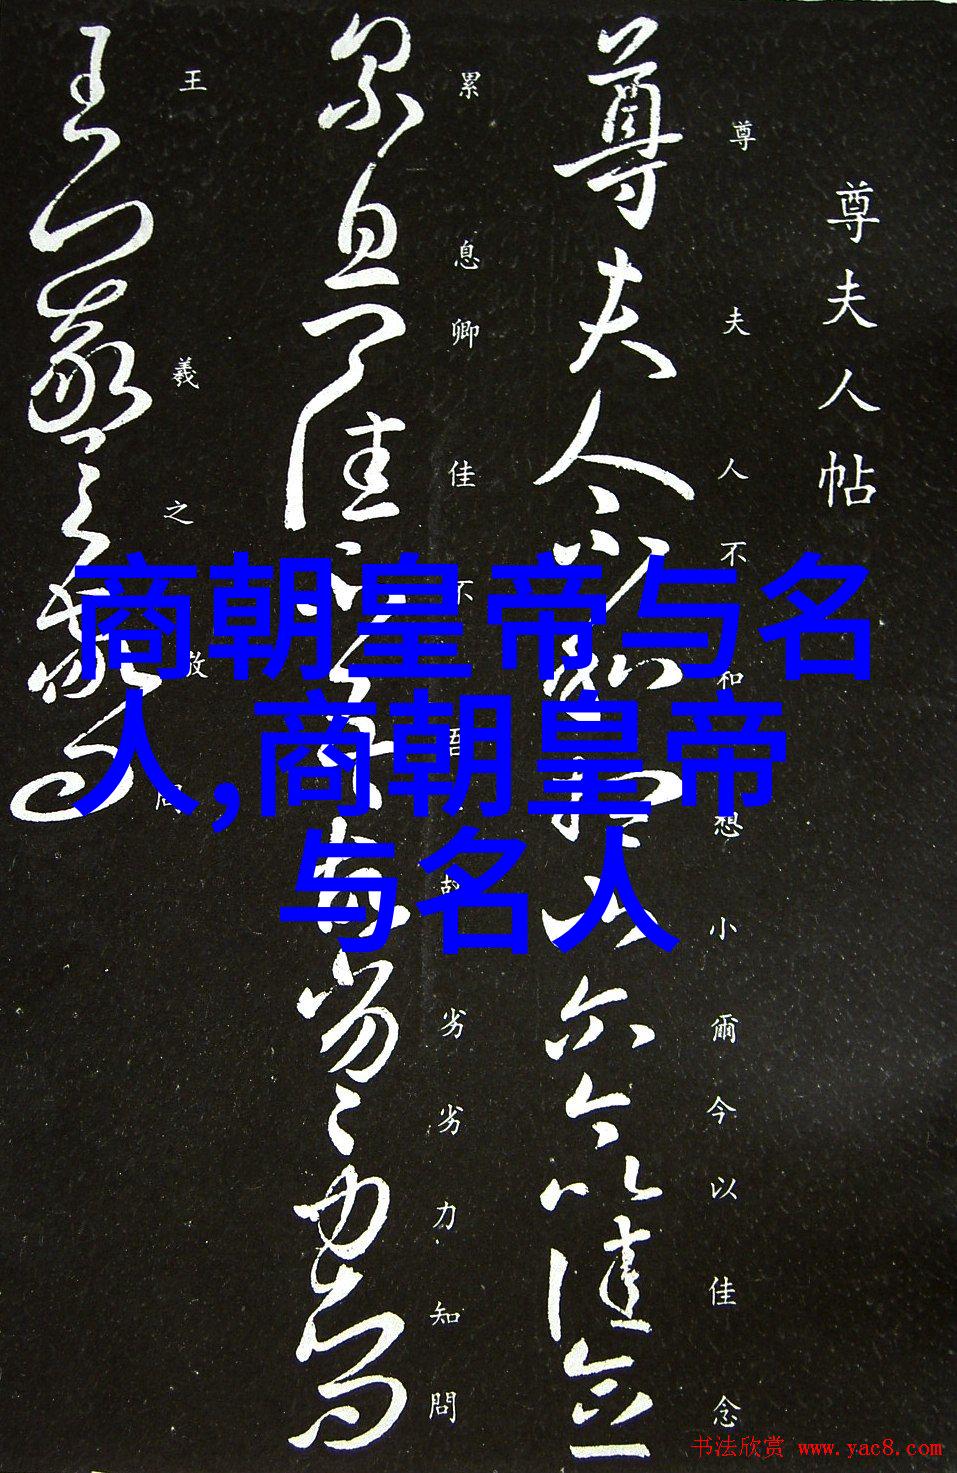 尊夫人帖
尊夫人不和想小爾今以佳念
累息卿佳不吾故劣劣力知問
王羲之敬問
商朝皇帝与名
人,商朝皇帝
与名人
书法欣赏 www.yac8.com